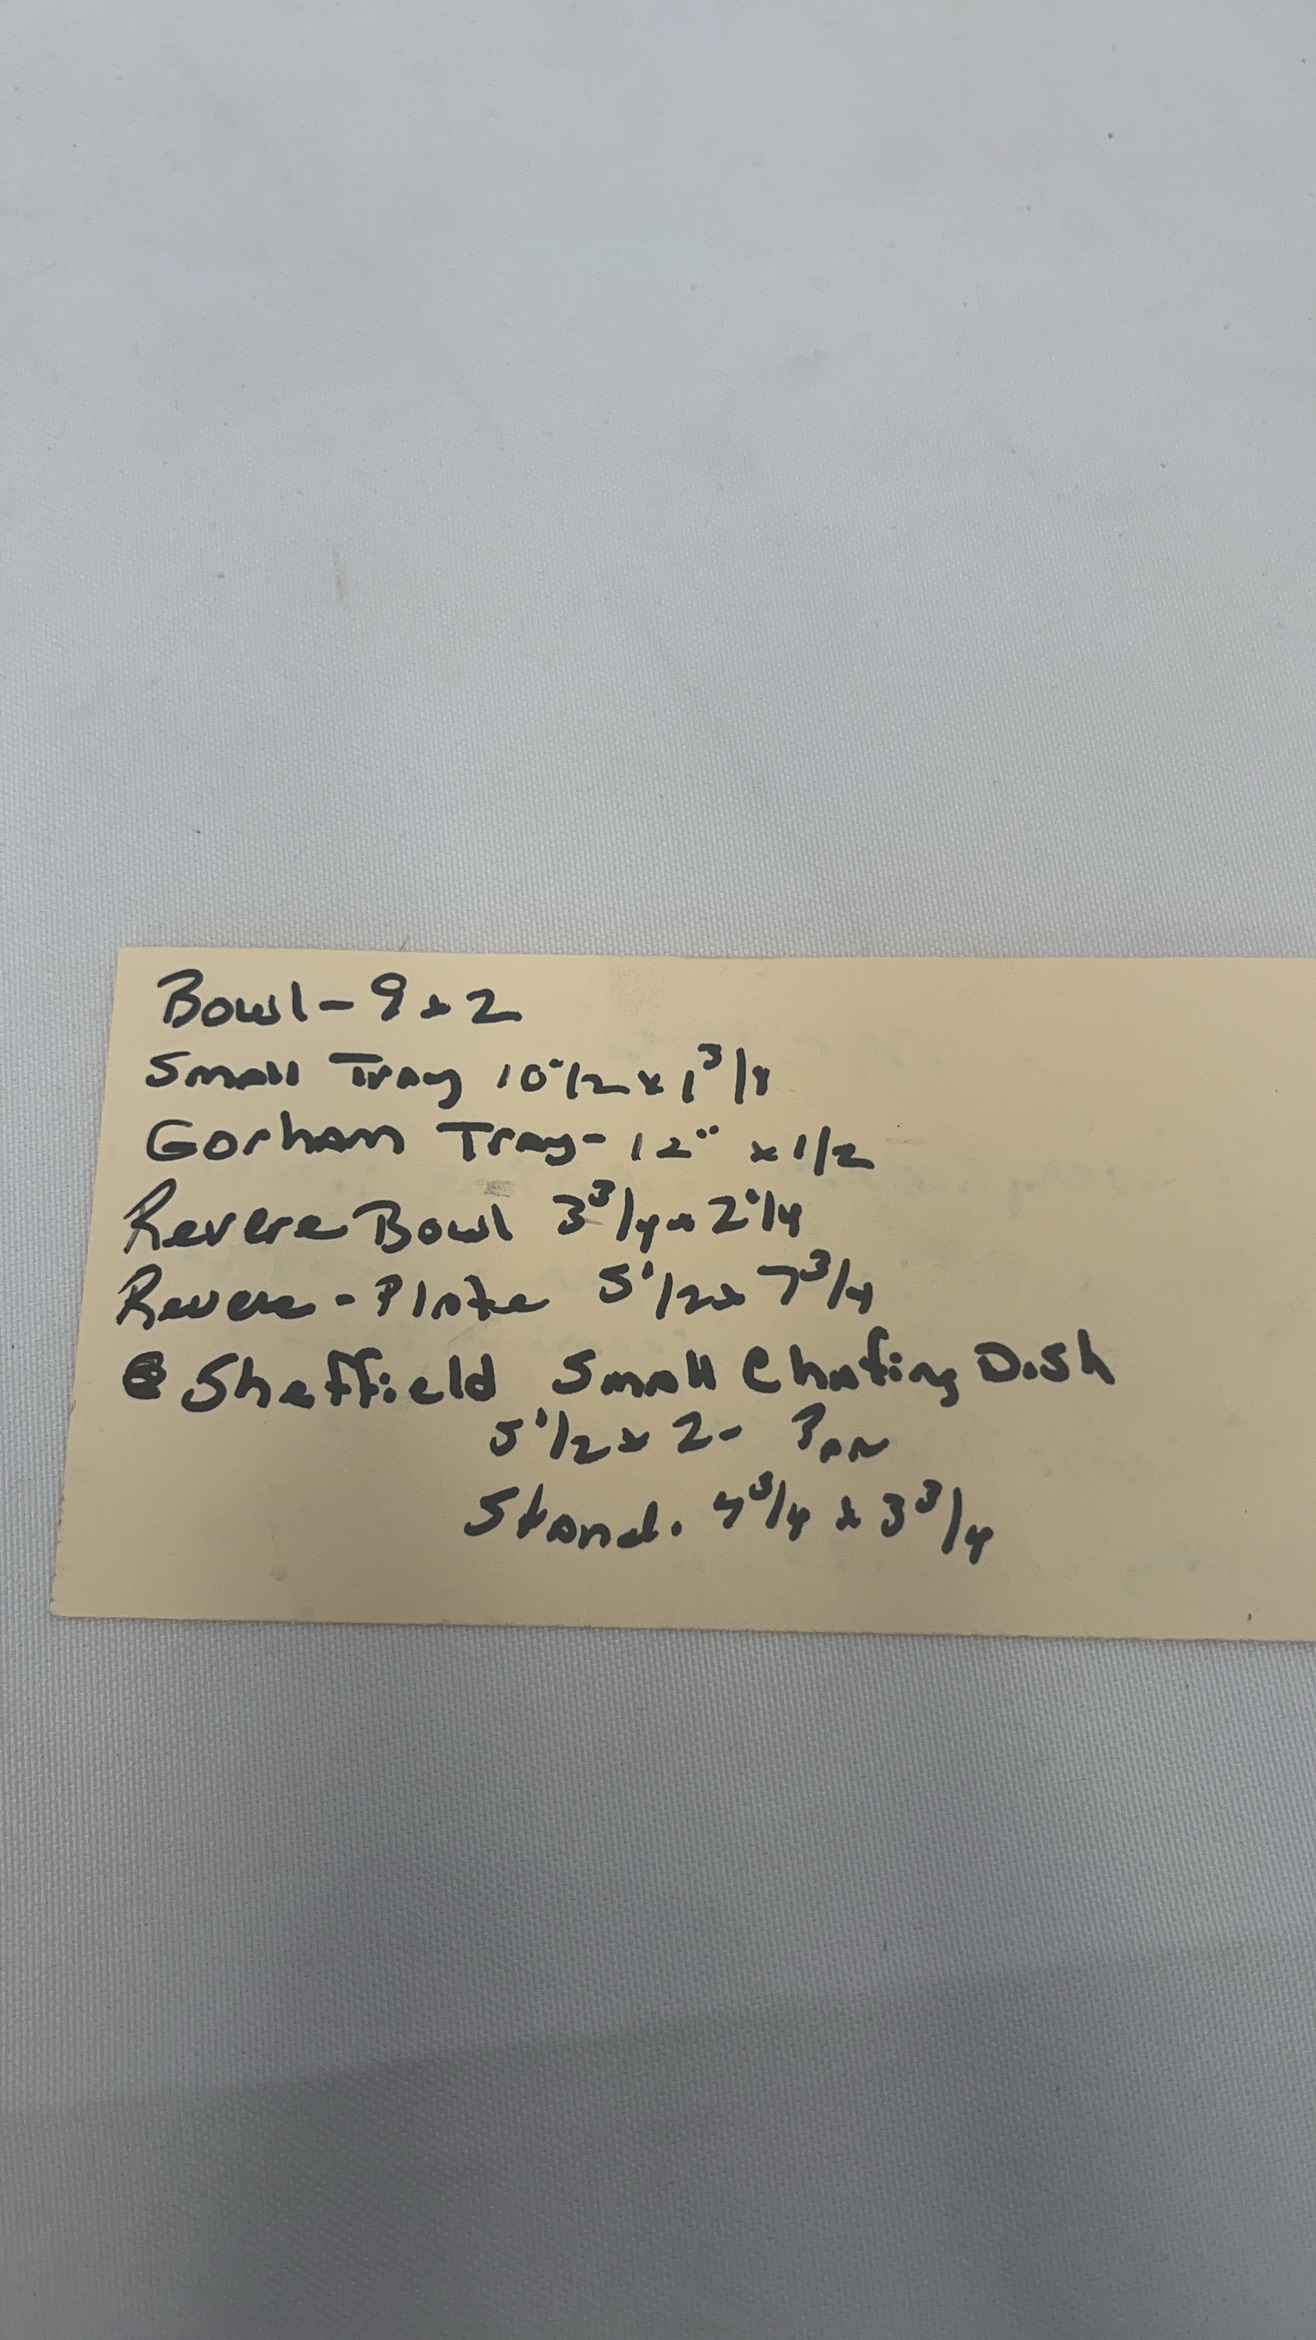 Bowl - 9 x 2
Small Tray 10 1/2 x 1 3/8
Gorham Tray - 12" x 1/2
Revere Bowl 3 3/4 x 2 1/4
Revere - Plate 5 1/2 x 7 3/4
Sheffield Small Chafing Dish
5 1/2 x 2 - Pan
Stand. x 3 3/4